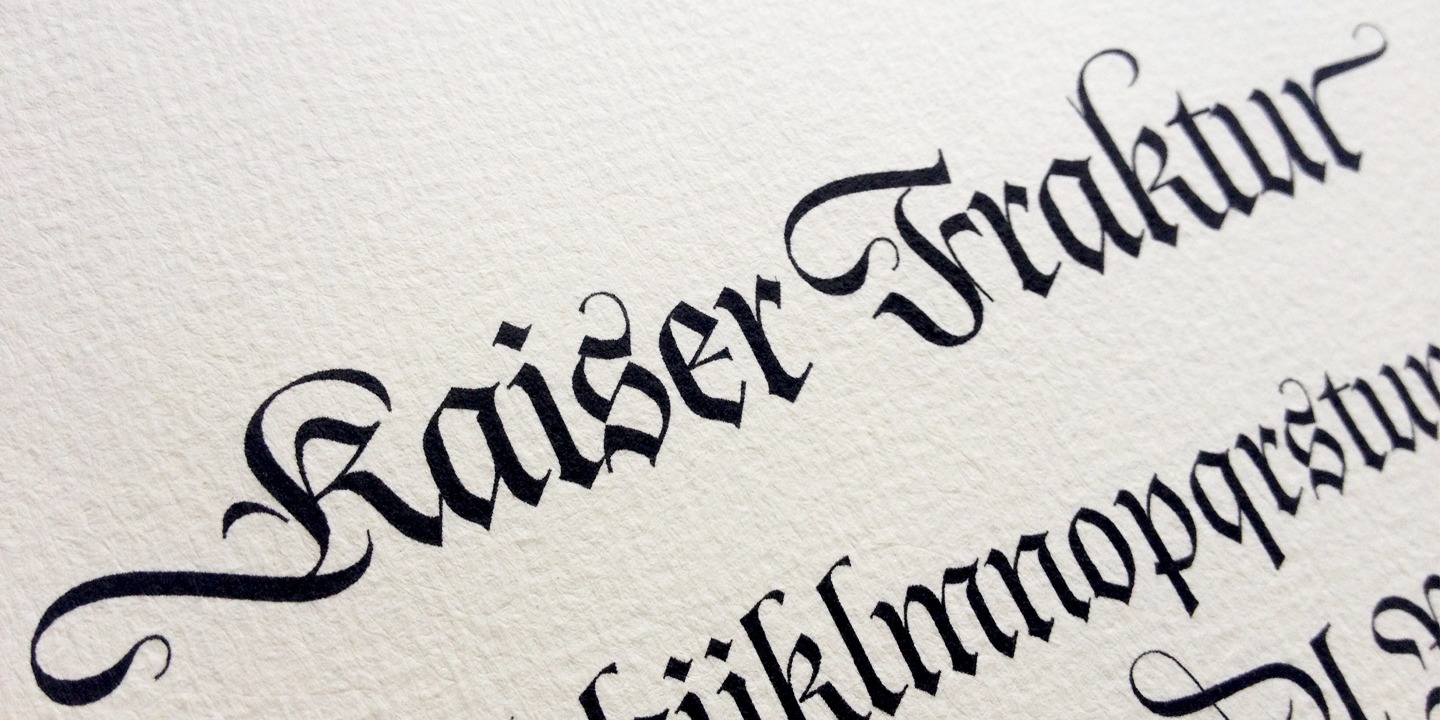 Kaiser Fraktur
hijklmnopqrstuv